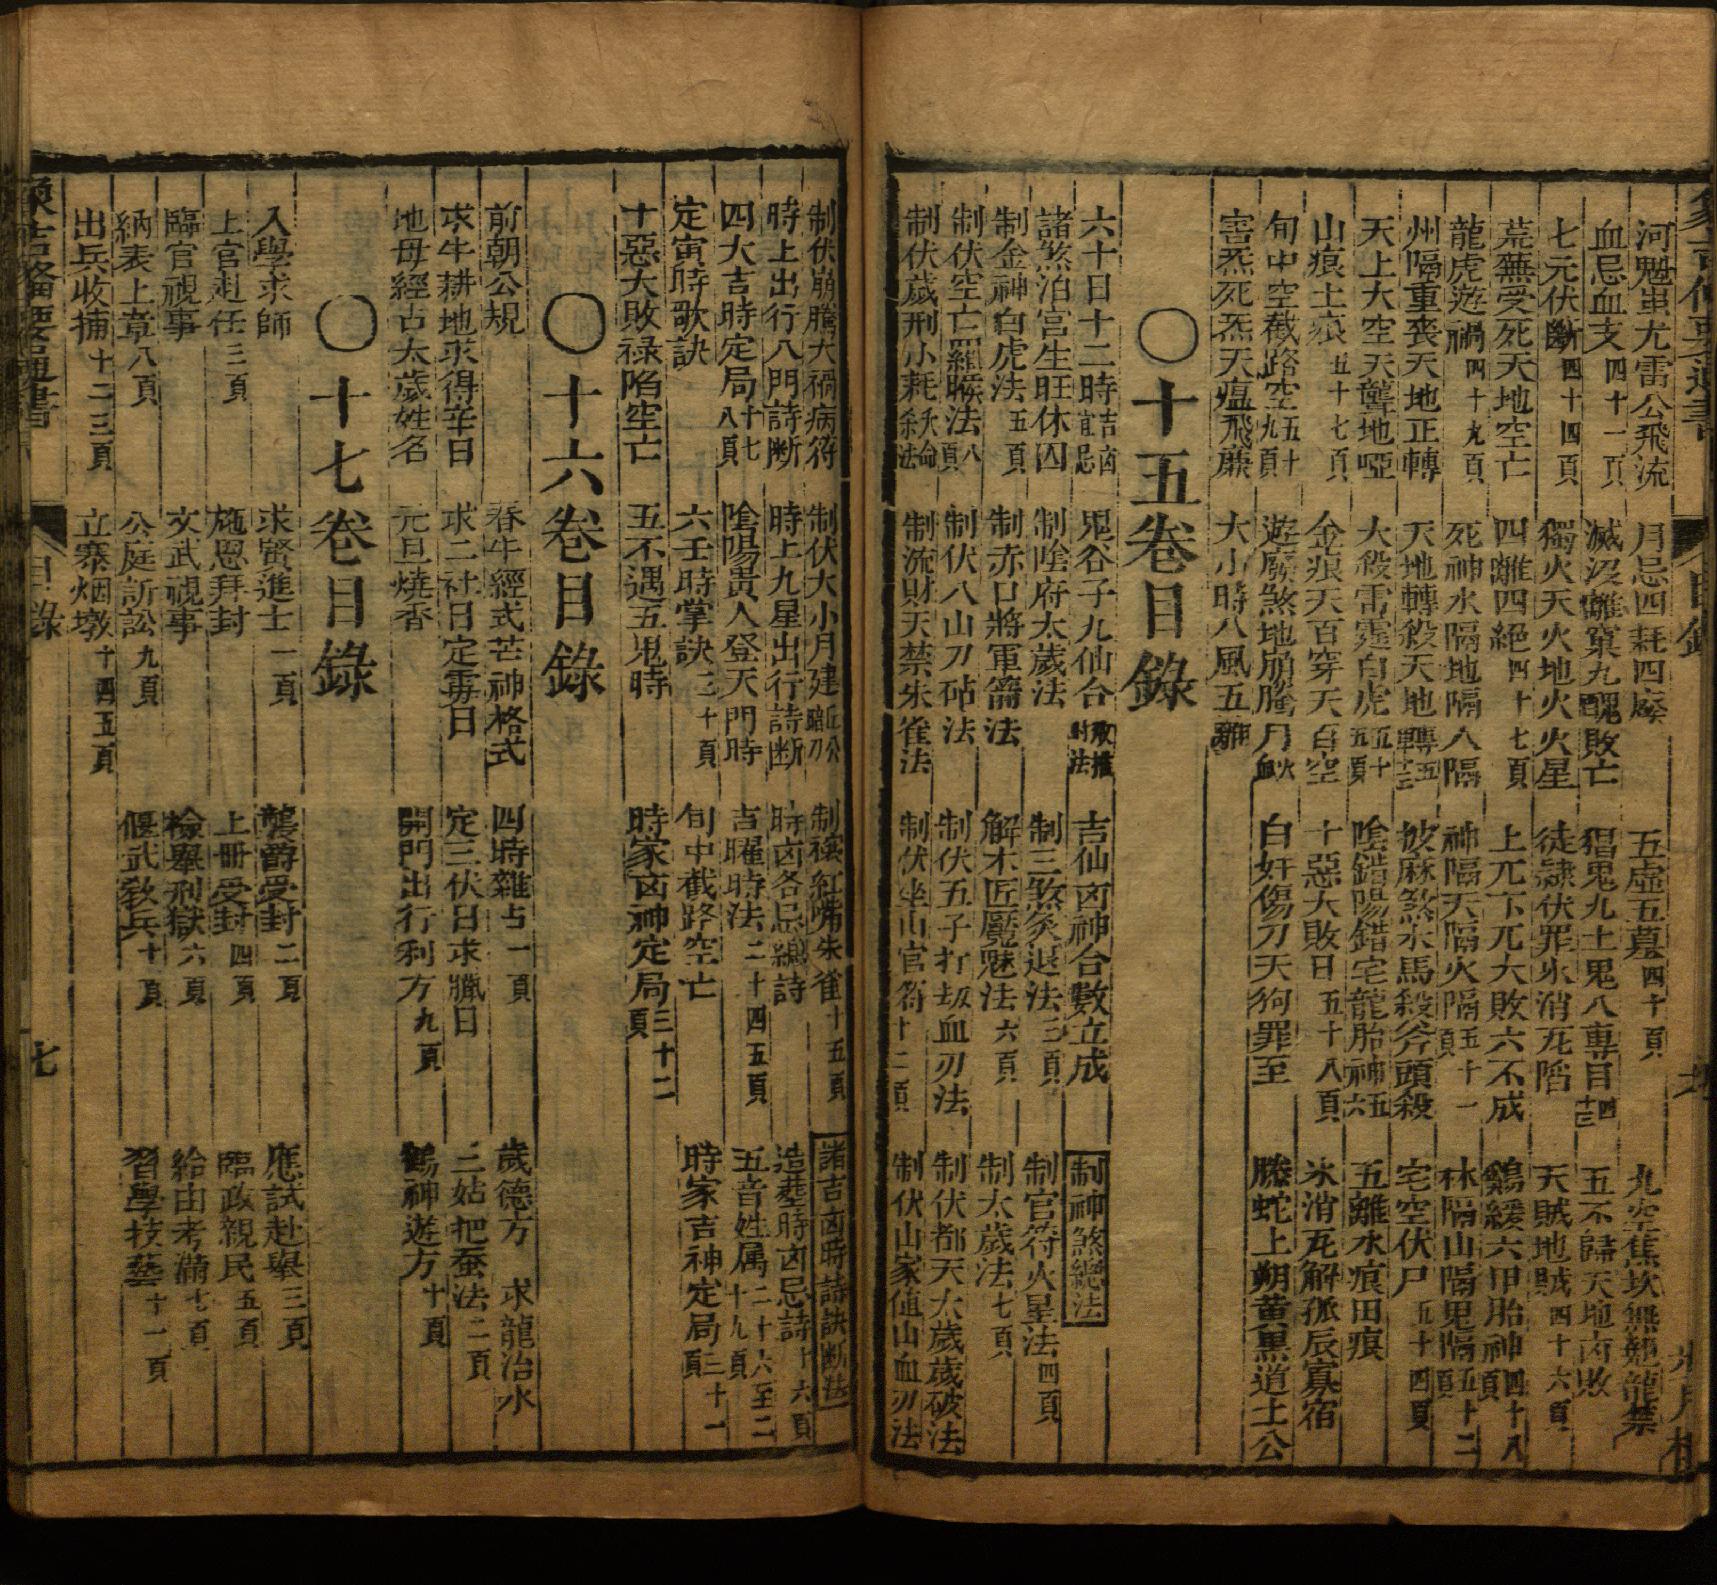 河魁蚩尤雷公飛流 月忌四耗四廢 五虛五墓四十頁 九空焦坎無翹龍禁
血忌血支四十一頁 滅沒離窠九醜敗亡 猖鬼九土鬼八專目 五不歸天地凶敗
七元伏斷四十四頁 獨火天火地火火星 徒隷伏罪氷消瓦陷 天賊地賊四十六頁
荒蕪受死天地空亡 四離四絕四十七頁 上兀下兀大敗六不成 鷄緩六甲胎神四十八頁
龍虎遊禍四十九頁 死神水隔地隔人隔 神隔天隔火隔五十一頁 林隔山隔鬼隔五十二頁
州隔重喪天地正轉 天地轉殺天地轉 披麻煞木馬殺斧頭殺 宅空伏尸五十四頁
天上大空天聾地啞 大殺雷霆白虎五十五頁 陰錯陽錯宅龍胎神五六 五離水痕田痕
山痕土痕五十七頁 金痕天百穿天百空 十惡大敗日五十八頁 氷消瓦解孤辰寡宿
旬中空截路空五十九頁 遊廢煞地崩騰月火血 白奸傷刀天狗罪至 螣蛇上朔黃黑道土公
害炁死炁天瘟飛廉 大小時八風五離
○十五卷目錄
六十日十二時吉凶宜忌 鬼谷子九仙合數推時法 吉仙凶神合數立成 制神煞總法
諸煞泊宮生旺休囚 制陰府太歲法 制三煞灸退法三頁 制官符火星法四頁
制金神白虎法五頁 制赤口將軍箭法 解木匠魘魅法六頁 制太歲法七頁
制伏空亡羅睺法八頁 制伏八山刀砧法 制伏五子打刼血刃法 制伏都天太歲歲破法
制伏歲刑小耗 制流財天禁朱雀法 制伏坐山官符十二頁 制伏山家値山血刃法
制伏崩騰大禍病符 制伏大小月建 制 紅嘴朱雀十五頁 諸吉凶時詩訣斷法
時上出行八門詩断 時上九星出行詩断 時凶各忌總詩 造塟時凶忌詩十六頁
四大吉時定局十七八頁 陰陽貴人登天門時 吉曜時法二十四五頁 五音姓属二十六至二十九頁
定寅時歌訣 六壬時掌訣三十頁 旬中截路空亡 時家吉神定局三十一頁
十惡大敗禄陷空亡 五不遇五鬼時 時家凶神定局三十二頁
○十六卷目錄
前朝公規 春牛經式芒神格式 四時雜占一頁 歲德方 求龍治水
求牛耕地求得辛日 求二社日定霉日 定三伏日求臘日 三姑把蚕法二頁
地母經占太歲姓名 元旦燒香 開門出行利方九頁 鶴神遊方十頁
○十七卷目錄
入學求師 求賢進士一頁 襲爵受封二頁 應試赴舉三頁
上官赴任三頁 施恩拜封 上冊受封四頁 臨政親民五頁
臨官視事 文武視事 檢舉刑獄六頁 給由考滿七頁
納表上章八頁 公庭訴訟九頁 偃武敎兵十頁 習學技藝十一頁
出兵收捕十二三頁 立寨烟墩十四五頁
目錄 七